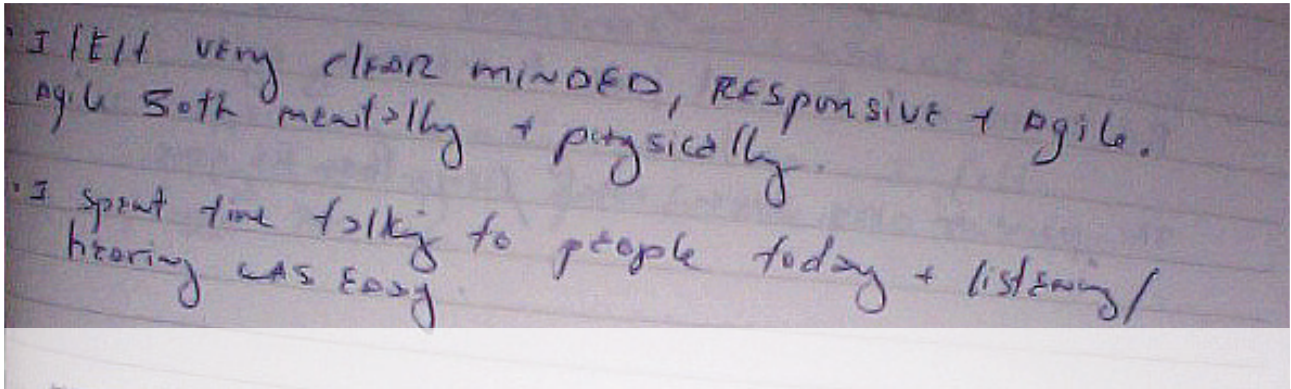 · I felt very clear minded, responsive + agile.
Agile both mentally + physically.
· I spent time talking to people today + listening/
hearing was easy.